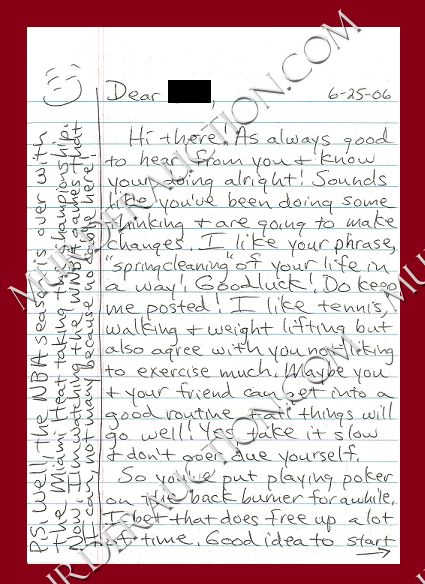 Dear
6-25-06
Hi there! As always good
to hear from you & know
your doing alright! Sounds
like you've been doing some
thinking & are going to make
changes. I like your phrase,
"springcleaning" of your life in
a way! Goodluck! Do keep
me posted! I like tennis,
walking & weight lifting but
also agree with you not liking
to exercise much. Maybe you
& your friend can get into a
good routine & all things will
go well! Yes take it slow
& don't over due yourself.
So you've put playing poker
on the back burner for awhile,
I bet that does free up a lot
of time. Good idea to start
P.S. Well, the NBA season is over with
the Miami Heat taking the championship.
Now, I'm watching the WNBA games that
I can, not many because no cable here!
MURDERAUCTION.COM
MURDERAUCTION.COM
MURDERAUCTION.COM